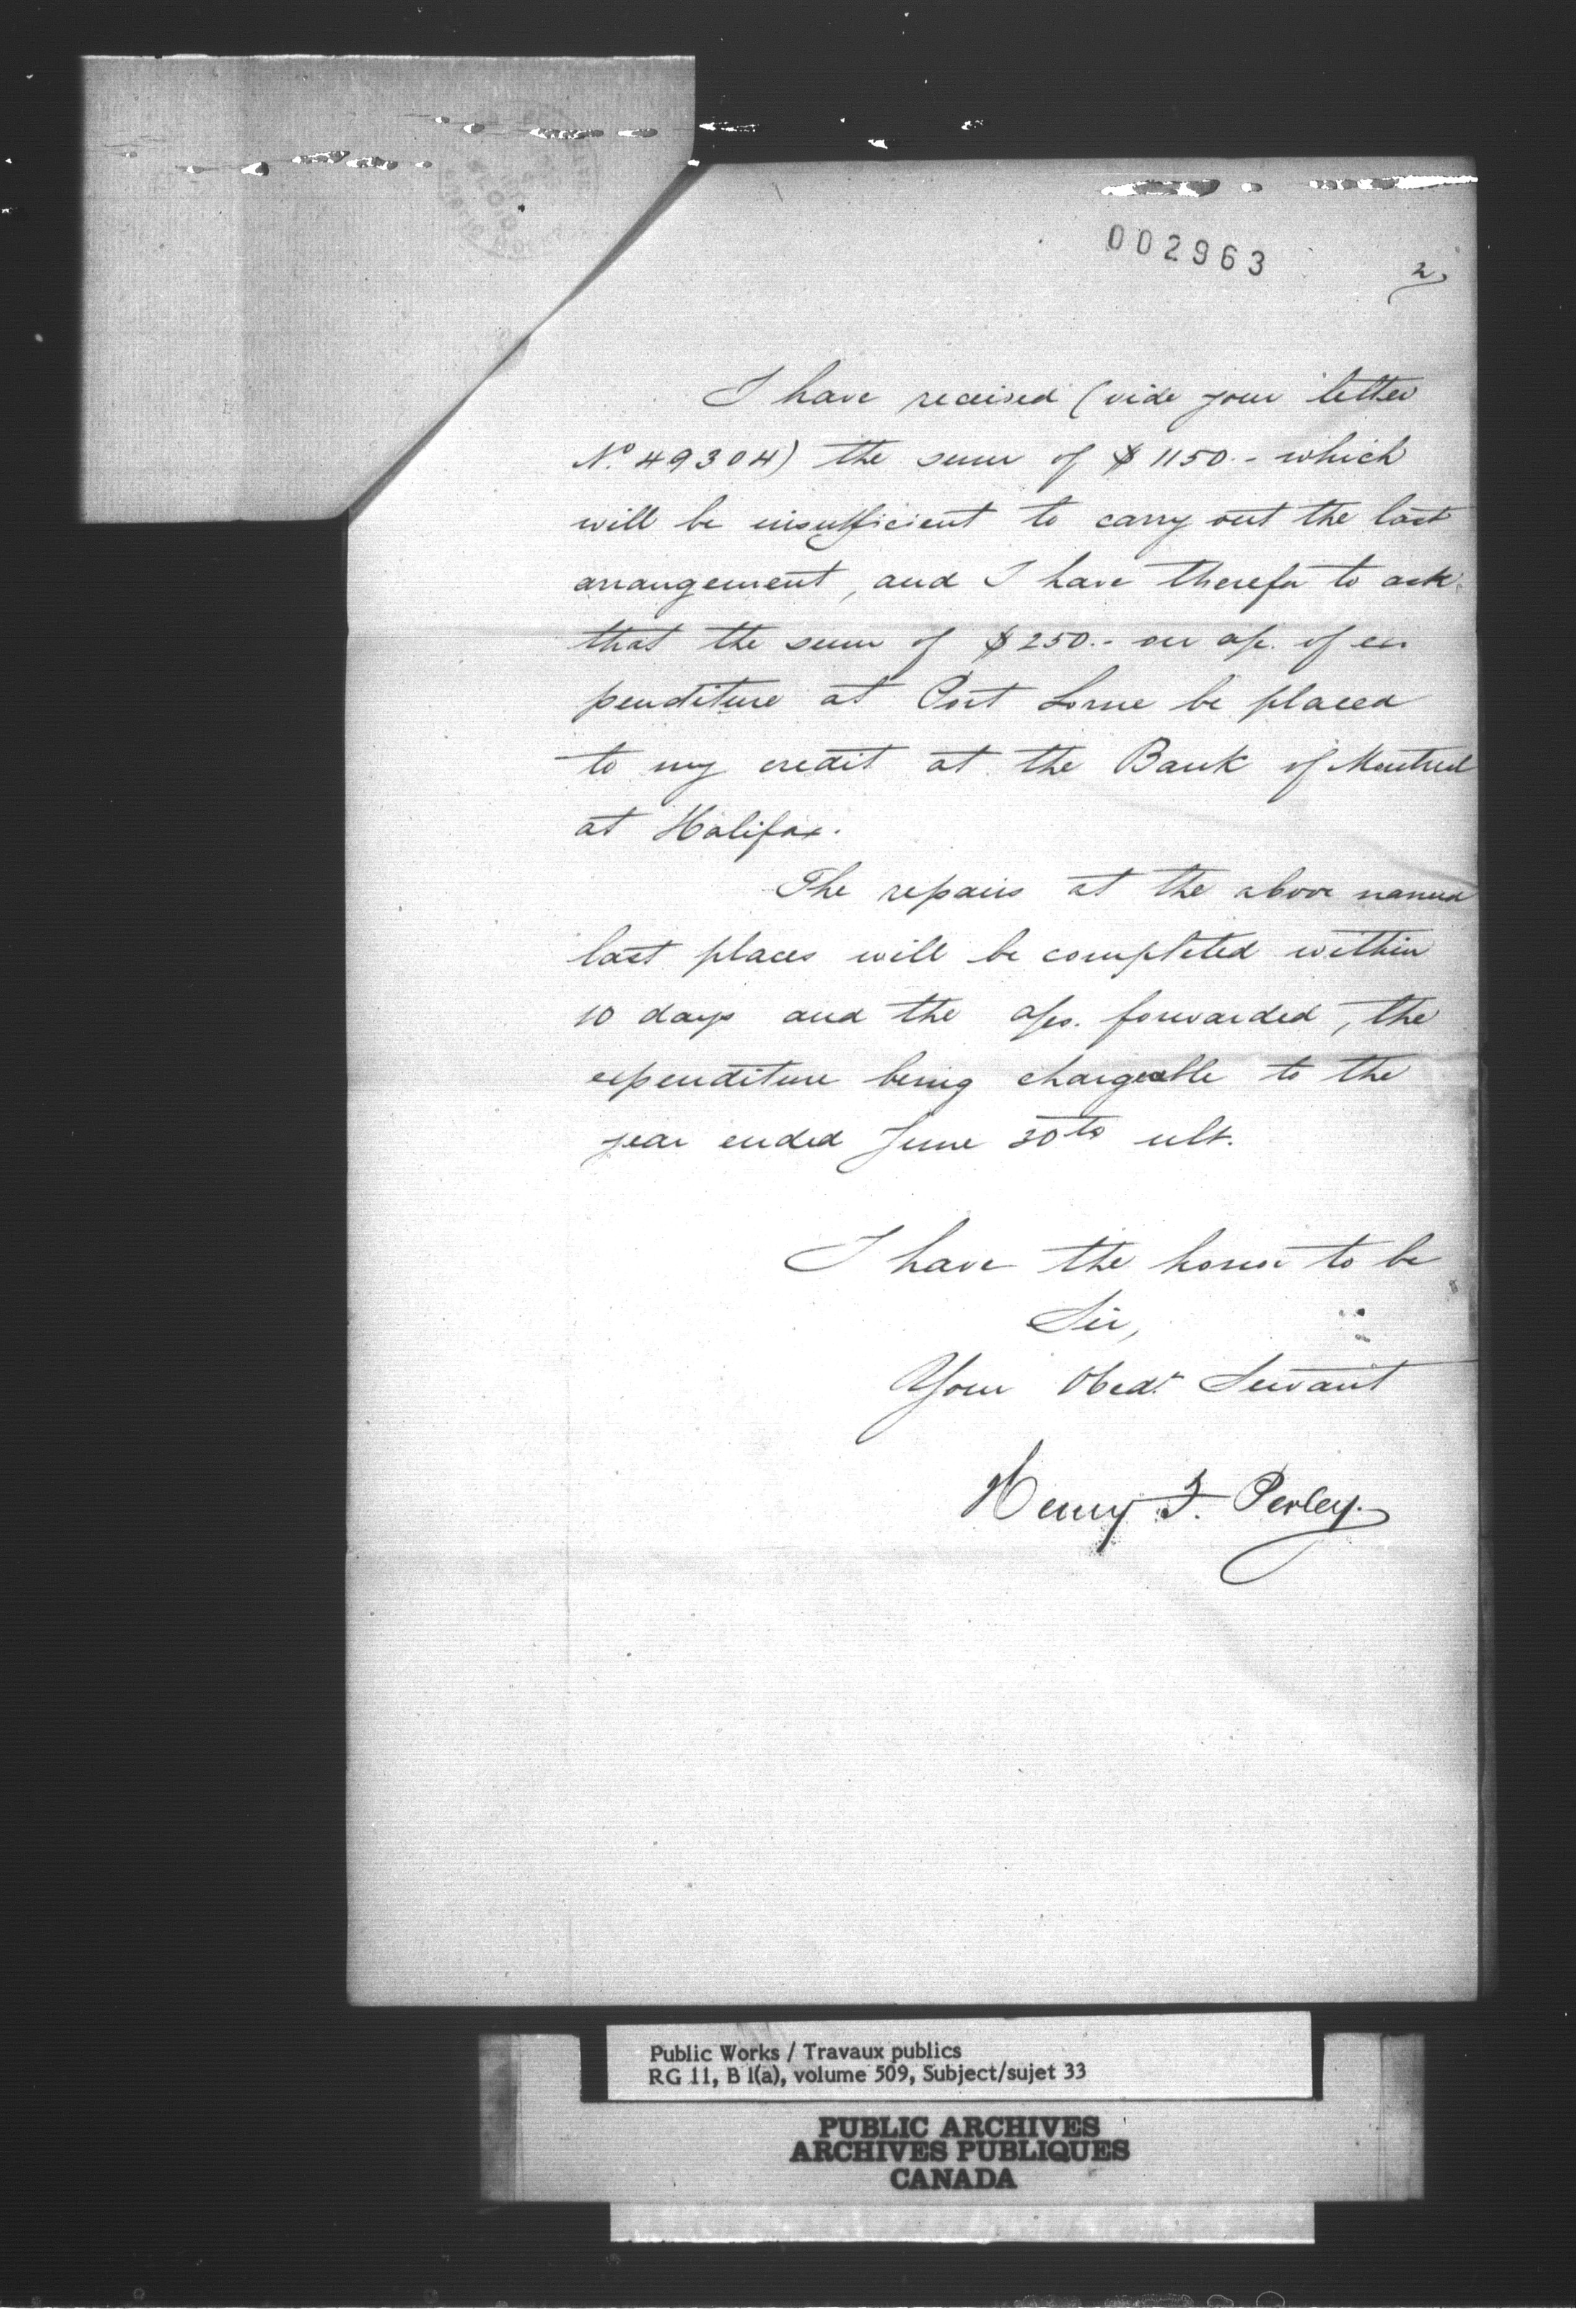 002963
2,
I have received (vide your letter
No. 49304) the sum of $1150.- which
will be insufficient to carry out the last
arrangement, and I have therefor to ask
that the sum of $250.- on a/c. of ex
penditure at Port Lorne be placed
to my credit at the Bank of Montreal
at Halifax.
The repairs at the above named
last places will be completed within
10 days and the a/cs. forwarded, the
expenditure being chargeable to the
year ended June 30th ult.
I have the honor to be
Sir,
Your Obedt. Servant
Henry F. Perley.
Public Works / Travaux publics
RG 11, B 1(a), volume 509, Subject/sujet 33
PUBLIC ARCHIVES
ARCHIVES PUBLIQUES
CANADA